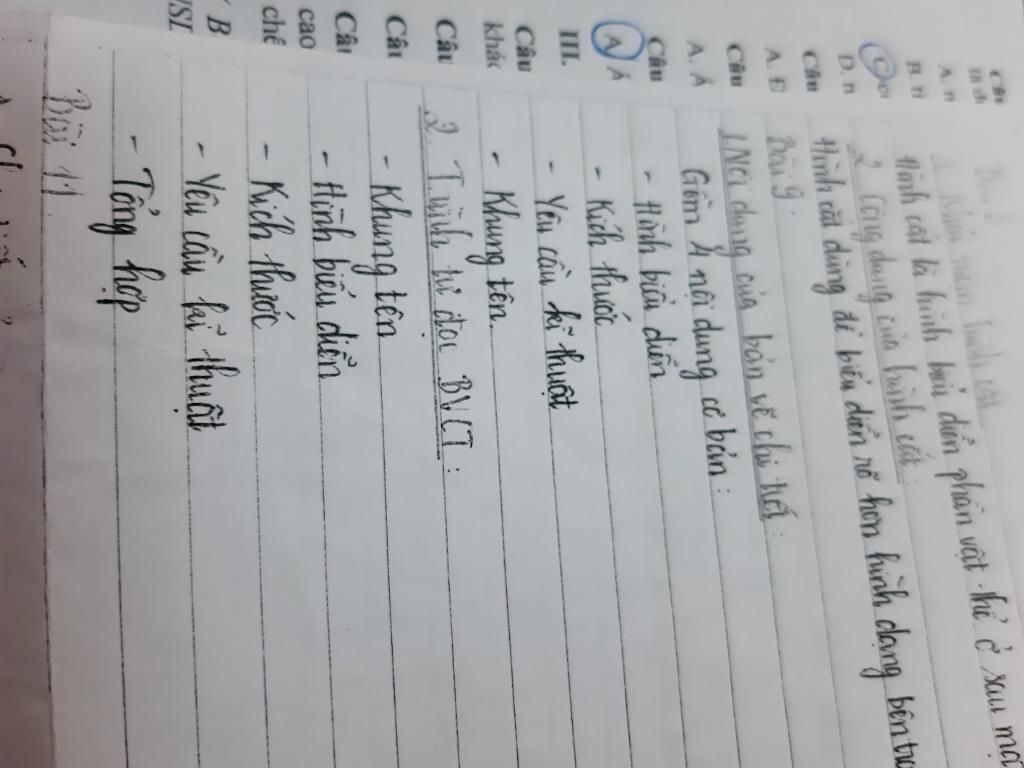 1. Khái niệm hình cắt
Hình cắt là hình biểu diễn phần vật thể ở sau mặ
2. Công dụng của hình cắt:
Hình cắt dùng để biểu diễn rõ hơn hình dạng bên tro
Bài 9.
1. Nội dung của bản vẽ chi tiết:
Gồm 4 nội dung cơ bản:
- Hình biểu diễn
- Kích thước
- Yêu cầu kĩ thuật
- Khung tên.
2. Trình tự đọc BVCT:
- Khung tên
- Hình biểu diễn
- Kích thước
- Yêu cầu kĩ thuật
- Tổng hợp
Bài 11
Câu
A. n
B. ti
C
D. n
Câu
A. Đ
Câu
A. Á
Câu
A Á
III.
Câu
khác
Câu
Câu
Câu
cao
chế
B